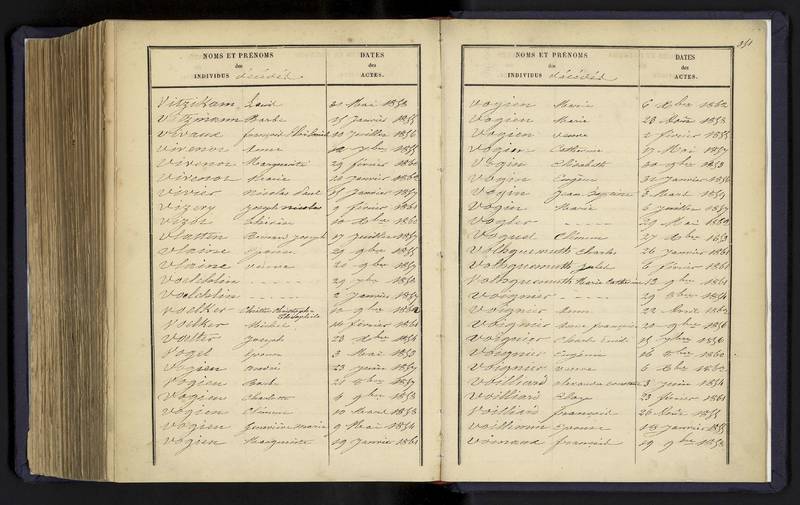 NOMS ET PRÉNOMS
des
INDIVIDUS décédés
DATES
des
ACTES.
Vitzikam Louis 20 Mai 1853
Vitzmann Barbe 15 Janvier 1855
Vivaux 10 Juillet 1856
Vivenot Anne 1855
Vivenot Marguerite 29 février 1860
Vivenot Marie Janvier 1862
Vivier Nicolas Paul 15 Janvier 1857
Vizery Joseph Nicolas 9 février 1861
Vizot 10 Xbre 1860
Vlattin Joseph 17 Juillet 1857
Vlaine 29 9bre 1855
Vlaine veuve 9bre 1857
Voeldelin - - - - - 29 7bre 1850
Voeldelin - - - - - 2 Janvier 1857
Voelker Théophile 10 9bre 1862
Voelker Michel 16 février 1861
Voetter Joseph 28 Xbre 1854
Vogel 3 Mai 1853
Vogien André 23 Juin 1857
Vogien Barbe 21 8bre 1857
Vogien Charlotte 4 9bre 1853
Vogien Clémence 10 Mars 1853
Vogien Geneviève Marie 9 Mai 1854
Vogien Marguerite 19 Janvier 1861
351
NOMS ET PRÉNOMS
des
INDIVIDUS décédés
DATES
des
ACTES.
Vogien Marie 6 Xbre 1862
Vogien Marie 28 Août 1853
Vogien veuve 2 février 1855
Vogien Catherine 17 Mai 1857
Vogin Elisabeth 30 9bre 1853
Vogin Eugène 31 Janvier 1856
Vogin Jean Baptiste 3 Mars 1854
Vogin Marie 6 Juillet 1857
Vogler - - - - - 29 Mai 1850
Voguet Clémence 27 Xbre 1853
Volkquemuth Charles 26 Janvier 1861
Volkquemuth Jules 6 février 1861
Volkquemuth Marie Catherine 12 9bre 1861
Voignier - - - - - 29 8bre 1854
Voignier Anne 22 Avril 1862
Voignier Anne française 20 9bre 1856
Voignier Charles Emile 15 7bre 1856
Voignier Eugénie 16 8bre 1860
Voignier veuve 6 Xbre 1862
Voilliard Alexandre 3 Juin 1854
Voilliard 23 février 1861
Voilliard français 26 Août 1855
Voillemin Epouse 18 Janvier 1855
Voinaux français 19 9bre 1858